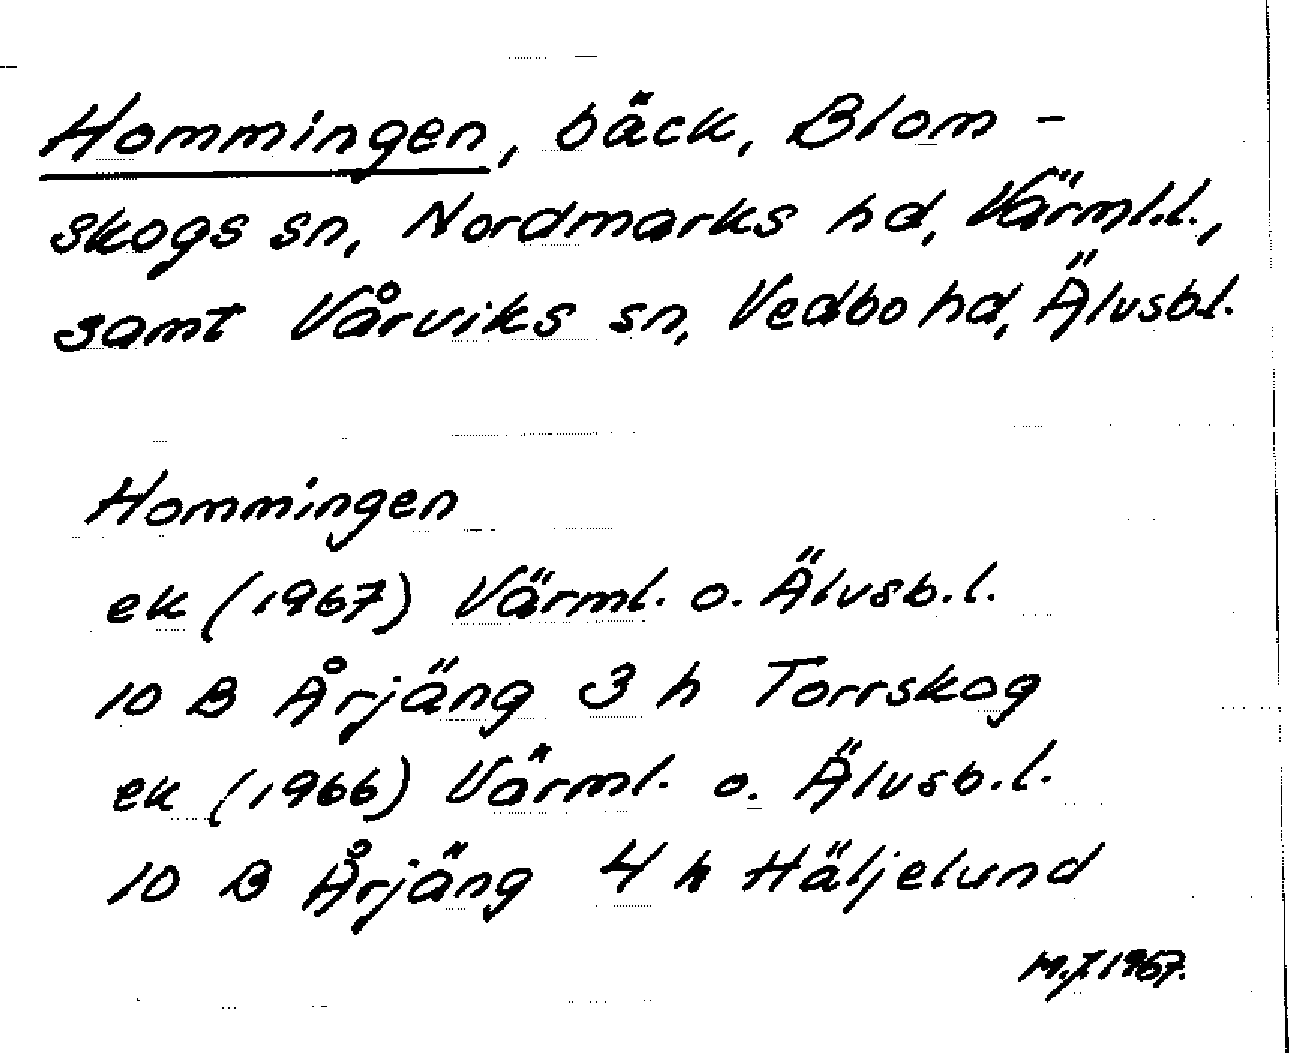 Hommingen, bäck, Blom-
skogs sn, Nordmarks hd, Värml.l.,
samt Vårviks sn, Vedbo hd, Älvsb.l.
Hommingen
ek (1967) Värml. o. Älvsb.l.
10 B Årjäng 3 h Torrskog
ek (1966) Värml. o. Älvsb.l.
10 B Årjäng 4 h Häljelund
M.J. 1967.